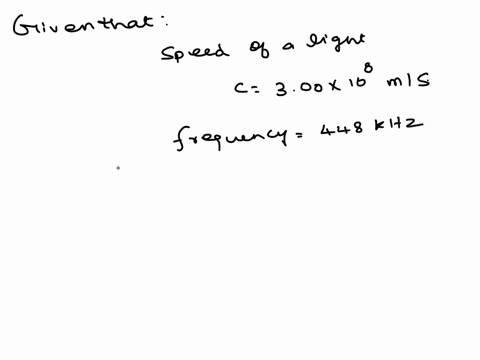 Given that:
Speed of a light
C = 3.00 × 10⁸ m/s
frequency = 448 kHz